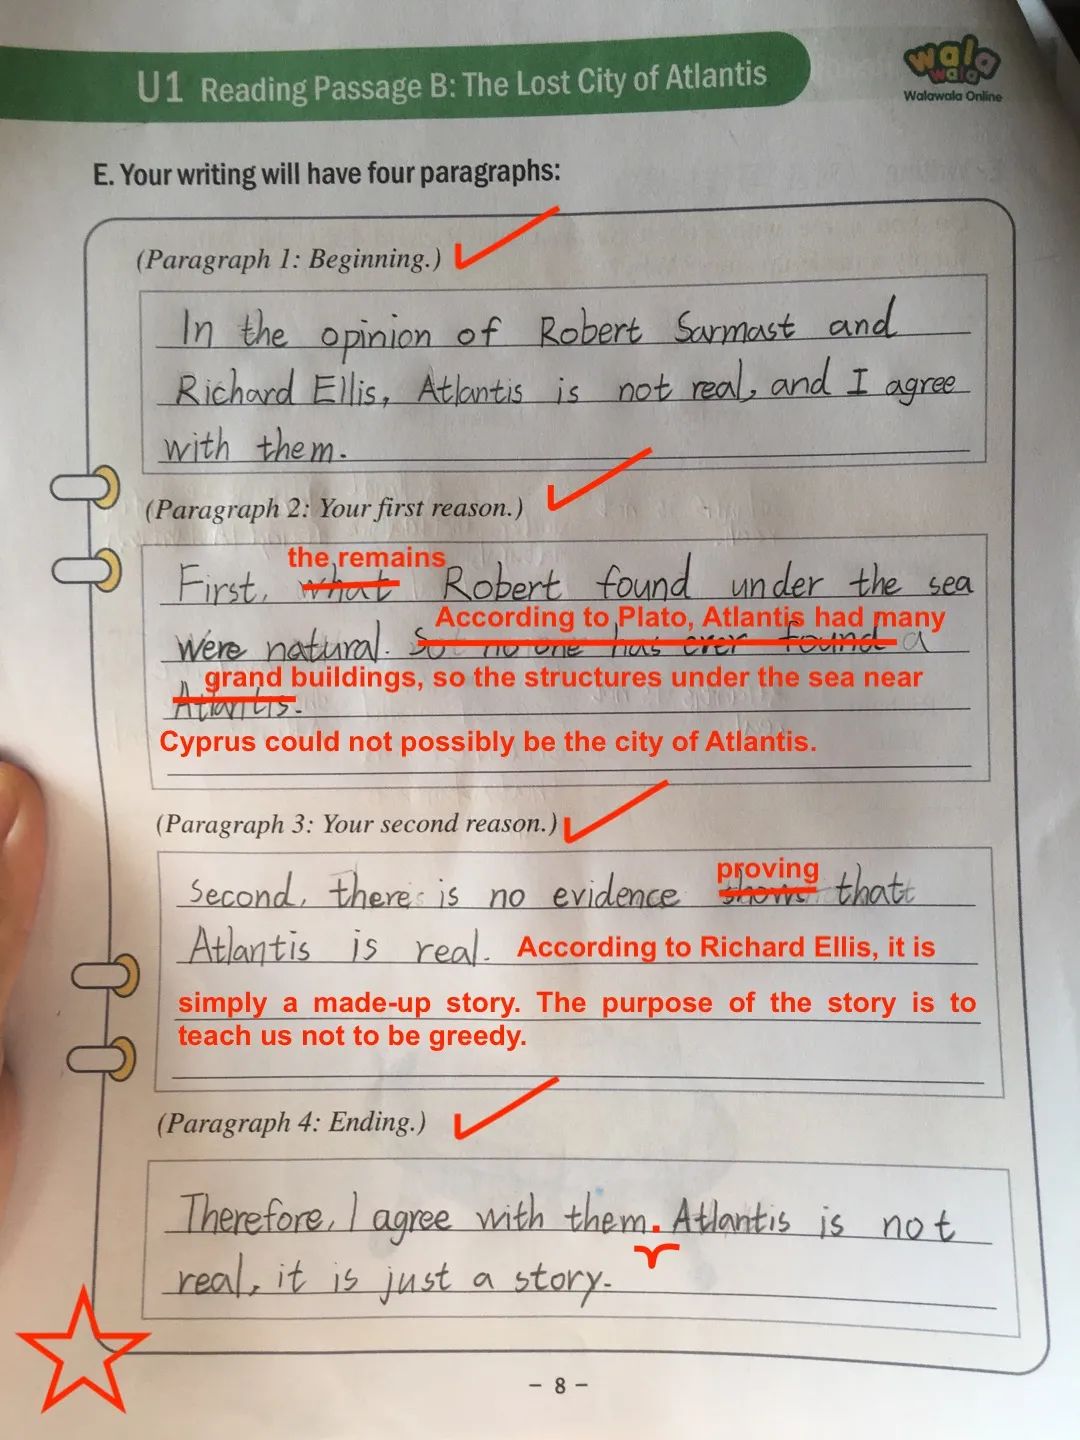 U1 Reading Passage B: The Lost City of Atlantis
wala
wala
Walawala Online
E. Your writing will have four paragraphs:
(Paragraph 1: Beginning.)
In the opinion of Robert Sarmast and
Richard Ellis, Atlantis is not real, and I agree
with them.
(Paragraph 2: Your first reason.)
the remains
First, what Robert found under the sea
According to Plato, Atlantis had many
were natural. So no one has ever found a
grand buildings, so the structures under the sea near
Atlantis.
Cyprus could not possibly be the city of Atlantis.
(Paragraph 3: Your second reason.)
proving
Second, there is no evidence shows that
Atlantis is real. According to Richard Ellis, it is
simply a made-up story. The purpose of the story is to
teach us not to be greedy.
(Paragraph 4: Ending.)
Therefore, I agree with them. Atlantis is not
real, it is just a story.
- 8 -